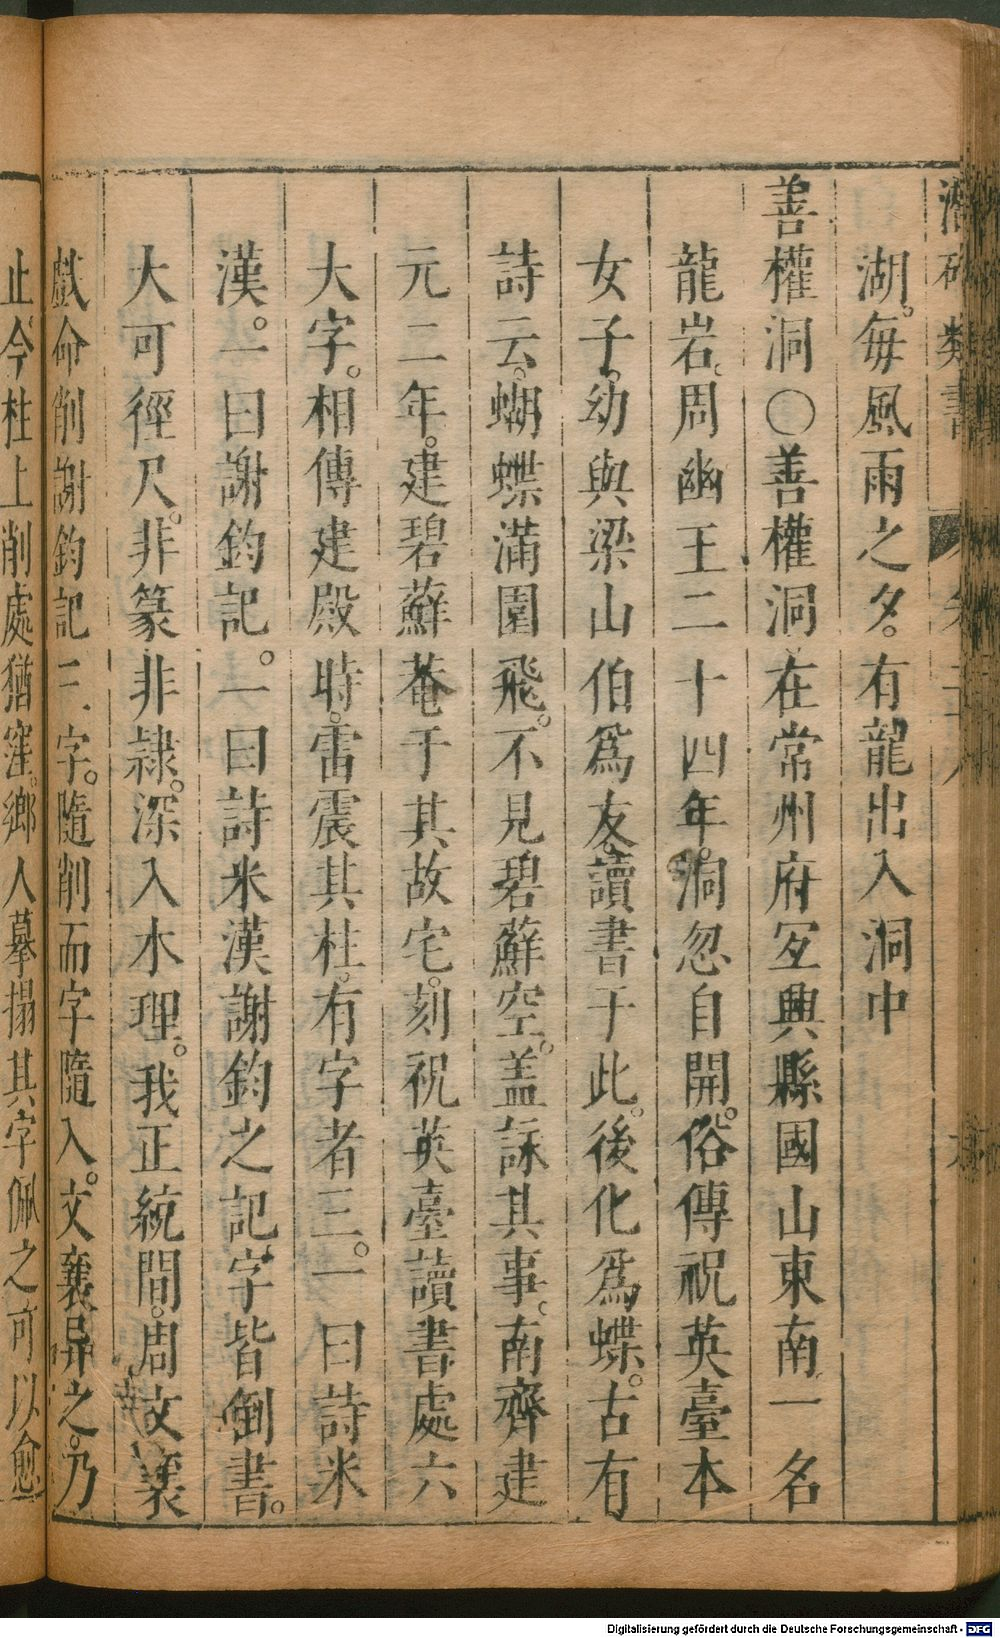 湖。每風雨之夕。有龍出入洞中
善權洞○善權洞在常州府冝興縣國山東南一名
龍岩。周幽王二十四年。洞忽自開。俗傳祝英臺本
女子。幼與梁山伯爲友。讀書于此。後化爲蝶。古有
詩云。蝴蝶滿園飛。不見碧蘚空。盖詠其事。南齊建
元二年。建碧蘚菴于其故宅。刻祝英臺讀書處六
大字。相傳建殿時。雷震其柱。有字者三。一曰詩米
漢。一曰謝鈞記。一曰詩米漢謝鈞之記字皆倒書。
大可徑尺。非篆非隷。深入木理。我正統間。周文襄
戱命削謝鈞記三字。隨削而字隨入。文襄异之。乃
止。今柱上削處猶窪。鄉人摹搨其字佩之可以愈
Digitalisierung gefördert durch die Deutsche Forschungsgemeinschaft - DFG